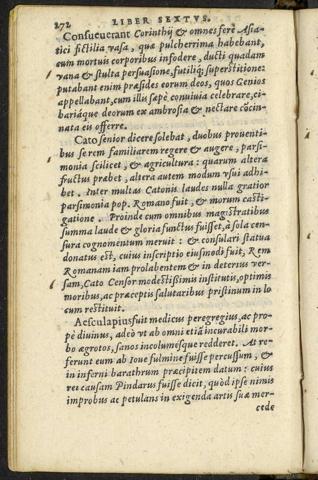 272 LIBER SEXTVS.
Consueuerant Corinthij & omnes ferè Asia-
tici fictilia vasa, quæ pulcherrima habebant,
cum mortuis corporibus infodere, ducti quadam
vana & stulta persuasione, futiliq; superstitione:
putabant enim præsides eorum deos, quos Genios
appellabant, cum illis sæpè conuiuia celebrare, ci-
bariáque deorum ex ambrosia & nectare cōcin-
nata eis offerre.
Cato senior dicere solebat, duobus prouenti-
bus se rem familiarem regere & augere, parsi-
monia scilicet, & agricultura: quarum altera
fructus præbet, altera autem modum vsui adhi-
bet. Inter multas Catonis laudes nulla gratior
parsimonia pop. Romano fuit, & morum casti-
gatione. Proinde cum omnibus magistratibus
summa laude & gloria functus fuisset, à sola cen-
sura cognomentum meruit: & consulari statua
donatus est, cuius inscriptio eiusmodi fuit, Rem
Romanam iam prolabentem & in deterius ver-
sam, Cato Censor modestißimis institutis, optimis
moribus, ac præceptis salutaribus pristinum in lo
cum restituit.
Aesculapius fuit medicus peregregius, ac pro-
pè diuinus, adeò vt ab omni etiā incurabili mor-
bo ægrotos, sanos incolumésque redderet. At re-
ferunt eum ab Ioue fulmine fuisse percussum, &
in inferni barathrum præcipitem datum: cuius
rei causam Pindarus fuisse dicit, quòd ipse nimis
improbus ac petulans in exigenda artis suæ mer-
cede